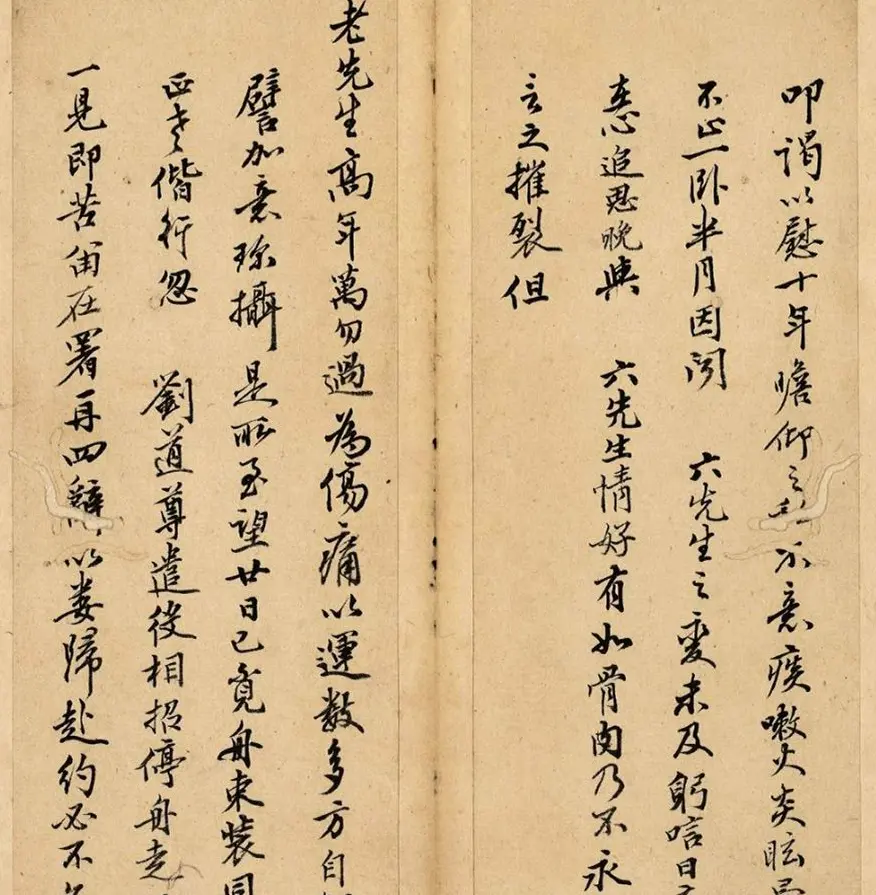 叩谒以慰十年瞻仰之私不意痰嗽火炎眩
不止一卧半月因闻 六先生之变未及躬唁日
恶追思畹典 六先生情好有如骨肉乃不永
言之摧裂但
老先生高年万勿過為傷痛以運數多方自
譬加意珍攝是所至望廿日已覓舟束裝同
偕行忽 劉道尊遣役相招停舟走
一見即苦留在署再四辭以婁歸赴約必不